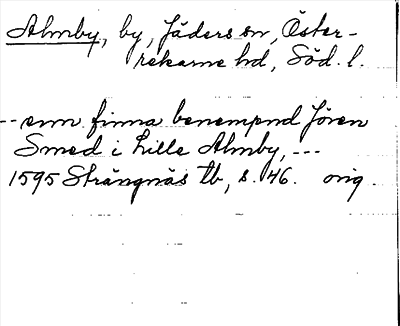 Almby, by, Jäders sn, Öster-
rekarne hd, Söd. l.
-- em finna benempnd Jören
Smed i Lille Almby, ---
1595 Strängnäs tb, s. 46. orig.